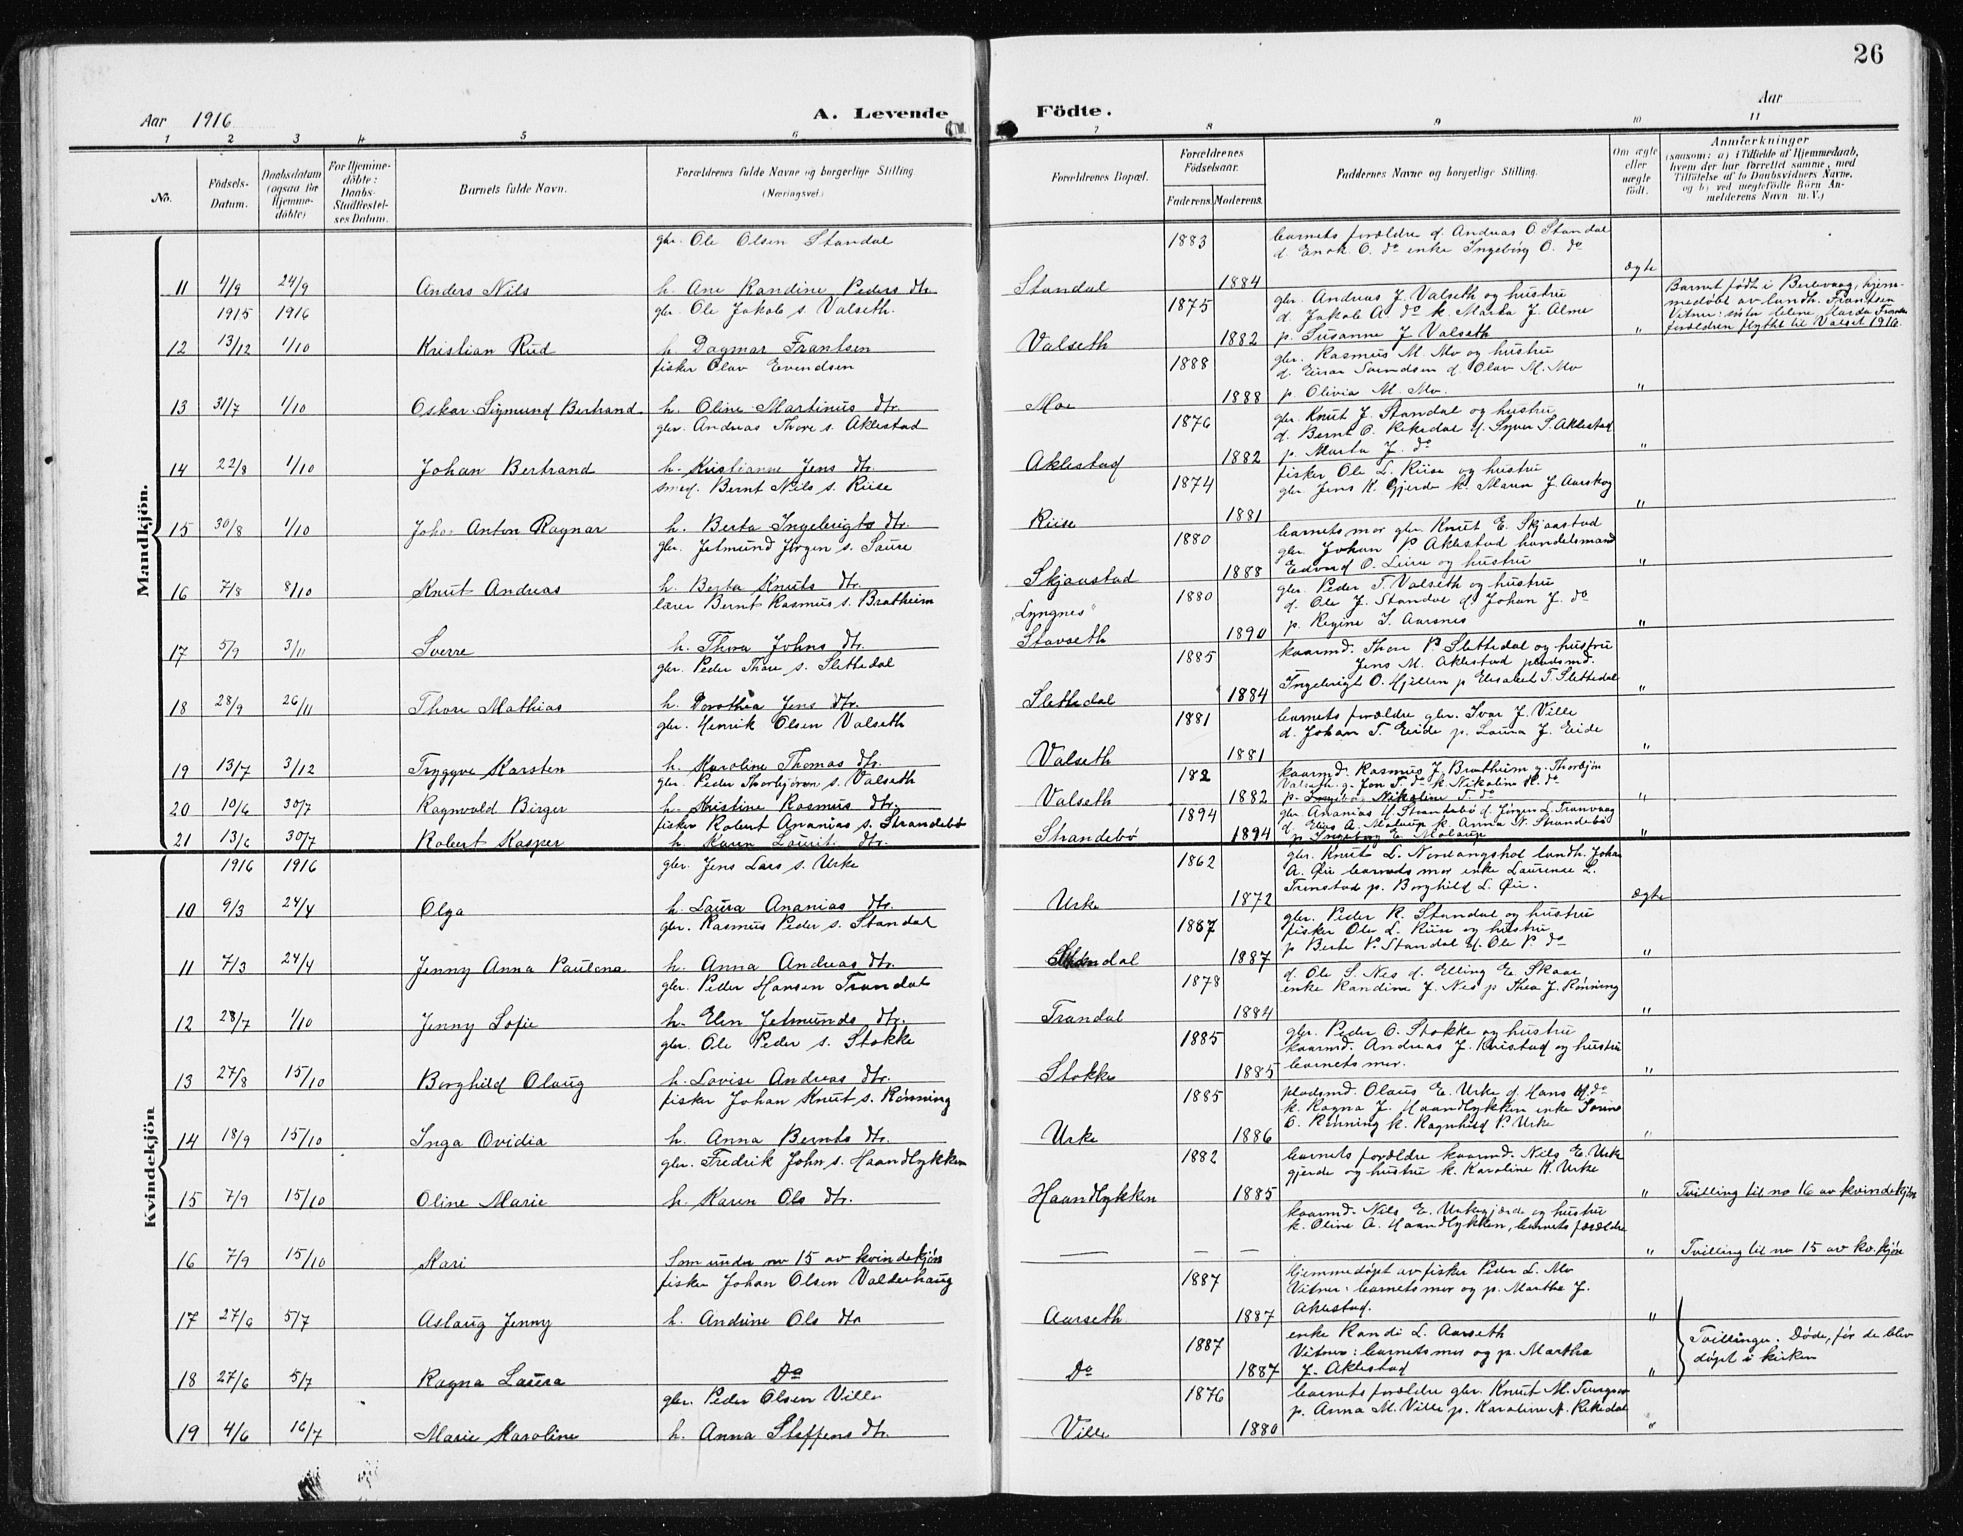 26
Aar 1916
A. Levende
Födte.
Aar
1 2 3 4 5 6 7 8 9 10 11
No.
Födsels-
Datum.
Daabsdatum
(ogsaa for
Hjemme-
döbte)
For Hjemme-
döbte:
Daabs-
Stadfæstel-
ses Datum.
Barnets fulde Navn.
Forældrenes fulde Navne og borgerlige Stilling
(Næringsvei)
Forældrenes Bopæl.
Forældrenes
Födselsaar.
Faderens. Moderens.
Faddernes Navne og borgerlige Stilling.
Om ægte
eller
uægte
födt.
Anmærkninger
(saasom: a) i Tilfælde af Hjemmedaab,
hvem der har forrettet samme, med
Tilföielse af to Daabsvidners Navne,
og b) ved uegtefödte Börn An-
melderens Navn m.V.)
Mandkjön.
gbr. Ole Olsen Standal 1883 barnets forældre g. Andreas O. Standal
d. Enok O. do enke Ingebörg O. do
11 4/9 24/9 Anders Nils h. Ane Randine Peders dtr. Standal 1884 ægte
1915 1916 gbr. Ole Jakob s. Valseth. 1875 gbr. Andreas J. Valseth og hustru
d. Jakob A. do k. Marta J. Alme
12 13/12 1/10 Kristian Rud h. Dagmar Frantsen Valseth 1882 p. Susanne J. Valseth "
Barnet født i Berlevaag, hjem-
medøbt av landh. Frantsen
forældren flytte til Valset 1916.
fisker Olav Evendsen 1888 gbr. Rasmus M. Mo og hustru
d. Einar Svendsen d. Olav M. Mo
13 31/7 1/10 Oskar Sigmund Bertrand h. Oline Martinus dtr. Moe 1888 p Olivia M. Mo. "
gbr. Andreas Thore s. Aklestad 1876 gbr. Knut J. Standal og hustru
d. Bernt O. Rekedal g. Syver S. Aklestad
14 22/8 1/10 Johan Bertrand h. Kristianne Jens dtr. Aklestad 1882 p. Marta J. do "
smed. Bernt Nils s. Riise 1874 fisker Ole L. Riise og hustru
gbr Jens K. Gjerde k. Maren J. Aarskog
15 30/8 1/10 Johan Anton Ragnar h. Berta Ingebrigts dtr. Riise 1881 "
gbr. Jetmund Jørgen s. Saure 1880 barnets mor gbr. Knut E. Skjaastad
gbr. Johan P. Aklestad handelsmand
16 7/8 8/10 Knut Andreas h. Berta Knuts dtr. Skjaastad 1888 Edvard O. Leira og hustru "
lærer Bernt Rasmus s. Bratheim "Lyngnes" 1880 gbr. Peder T. Valseth og hustru
d. Ole J. Standal d. Johan J. do
17 5/9 3/11 Sverre h. Thora Johns dtr. Stavseth 1890 p. Regine S. Aarsnes "
gbr. Peder Thore s. Slettedal 1885 kaarmd. Thore P. Slettedal og hustru
Jens M. Aklestad pladsmd.
18 28/9 26/11 Thore Mathias h. Dorothea Jens dtr. Slettedal 1884 Ingebrigt O. Hjellen p Elisabet T. Slettedal "
gbr. Henrik Olsen Valseth 1881 barnets forældre gbr. Ivar J. Ville
d. Johan T. Eide p. Laura J. Eide
19 13/7 3/12 Tryggve Karsten h. Karoline Thomas dtr. Valseth 1881 "
gbr. Peder Thorbjørn s. Valseth 182 kaarmd. Rasmus J. Bratheim g. Thorbjørn
Valseth g. Jon T. do k. Nikoline R. do
20 10/6 30/7 Ragnvald Birger h. Kristine Rasmus dtr. Valseth 1882 p. Nikoline T. do "
fisker Robert Ananias s. Strandebø 1894 gbr. Ananias H. Strandebø d. Jørgen L. Tranvaag
d. Elias A. Molaup k. Anna N. Strandebø
21 13/6 30/7 Robert Kasper h. Karen Laurit. dtr. Strandebø 1894 p Ingeborg E. Molaup "
Kvindekjön
1916 1916 gbr. Jens Lars s. Urke 1862 gbr. Knut L. Nordangshol landh. Johan
A. Øie barnets mor enke Laurense L.
10 9/3 24/4 Olga h. Laura Ananias dtr. Urke 1872 Trinstad p. Borghild L. Øie. ægte
gbr. Rasmus Peder s. Standal 1887 gbr. Peder R. Standal og hustru
fisker Ole L. Riise og hustru
11 7/3 24/4 Jenny Anna Paulena h. Anna Andreas dtr. Standal 1887 p Berte P. Standal g. Ole P. do "
gbr. Peder Hansen Trandal 1878 d. Ole S. Nes d. Elling E. Skaar
enke Randine J. Nes p Thea J. Rønning
12 28/7 1/10 Jenny Sofie h. Elen Jetmunds dtr. Trandal 1884 "
gbr. Ole Peder s. Stokke 1885 gbr. Peder O. Stokke og hustru
kaarmd. Andreas J. Kvistad og hustru
13 27/8 15/10 Borghild Olaug h. Lovise Andreas dtr. Stokke 1885 barnets mor. "
fisker Johan Knut s. Rønning 1885 pladsmd. Olaus E. Urke d. Hans M. do
k. Ragna J. Haandlykken enke Sorine
14 18/9 15/10 Inga Ovidia h. Anna Bernts dtr. Urke 1886 O. Rønning k. Ragnhild P. Urke "
gbr. Fredrik John s. Haandlykken 1882 barnets forældre kaarmd. Nils E. Urke
gjerde og hustru k. Karoline K. Urke
15 7/9 15/10 Oline Marie h. Karen Ols dtr. Haandlykken 1885 " Tvilling til no 16 av kvindekjøn
kaarmd. Nils E. Urkegjærde og hustru
k. Oline A. Haandlykken, barnets forældre
16 7/9 15/10 Kari Som under no 15 av kvindekjøn — — — " Tvilling til no 15 av kv.kjøn
fisker Johan Olsen Valderhaug 1887 hjemmedøpt av fisker Peder L. Mo
Vitner: barnets mor og p. Martha J.
17 27/6 5/7 Aslaug Jenny h. Andrine Ols dtr Aarseth 1887 Aklestad. "
1887 enke Randi L. Aarseth
Vitner: barnets mor og p. Martha
18 27/6 5/7 Ragna Laura Do Do 1887 J. Aklestad "
Tvillinger. Døde, før de blev
døpt i kirken
gbr. Peder Olsen Ville 1876 barnets forældre gbr. Knut M.
p. Anna M. Ville p. Karoline A. Rekedal
19 4/6 16/7 Marie Karoline h. Anna Steffens dtr. Ville 1880 "